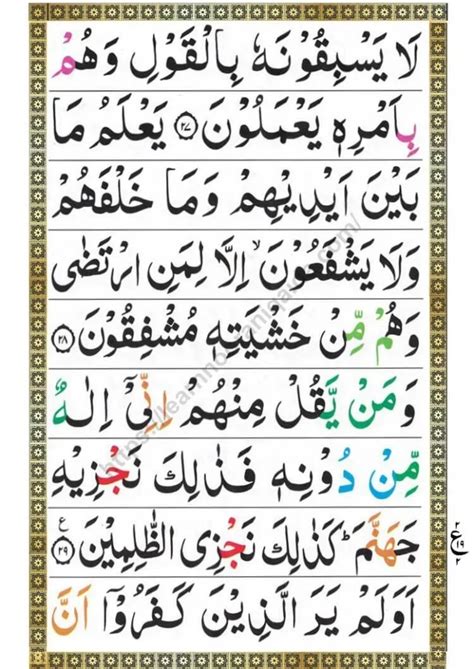 لَا يَسْبِقُوْنَهٗ بِالْقَوْلِ وَهُمْ
بِاَمْرِهٖ يَعْمَلُوْنَ ﴿۲۷﴾ يَعْلَمُ مَا
بَيْنَ اَيْدِيْهِمْ وَمَا خَلْفَهُمْ
وَلَا يَشْفَعُوْنَ ۙ اِلَّا لِمَنِ ارْتَضٰى
وَهُمْ مِّنْ خَشْيَتِهٖ مُشْفِقُوْنَ ﴿۲۸﴾
وَمَنْ يَّقُلْ مِنْهُمْ اِنِّىْۤ اِلٰهٌ
مِّنْ دُوْنِهٖ فَذٰلِكَ نَجْزِيْهِ
جَهَنَّمَ ؕ كَذٰلِكَ نَجْزِى الظّٰلِمِيْنَ ﴿۲۹﴾ ع
۲
ع ۱۹
۲
اَوَلَمْ يَرَ الَّذِيْنَ كَفَرُوْۤا اَنَّ